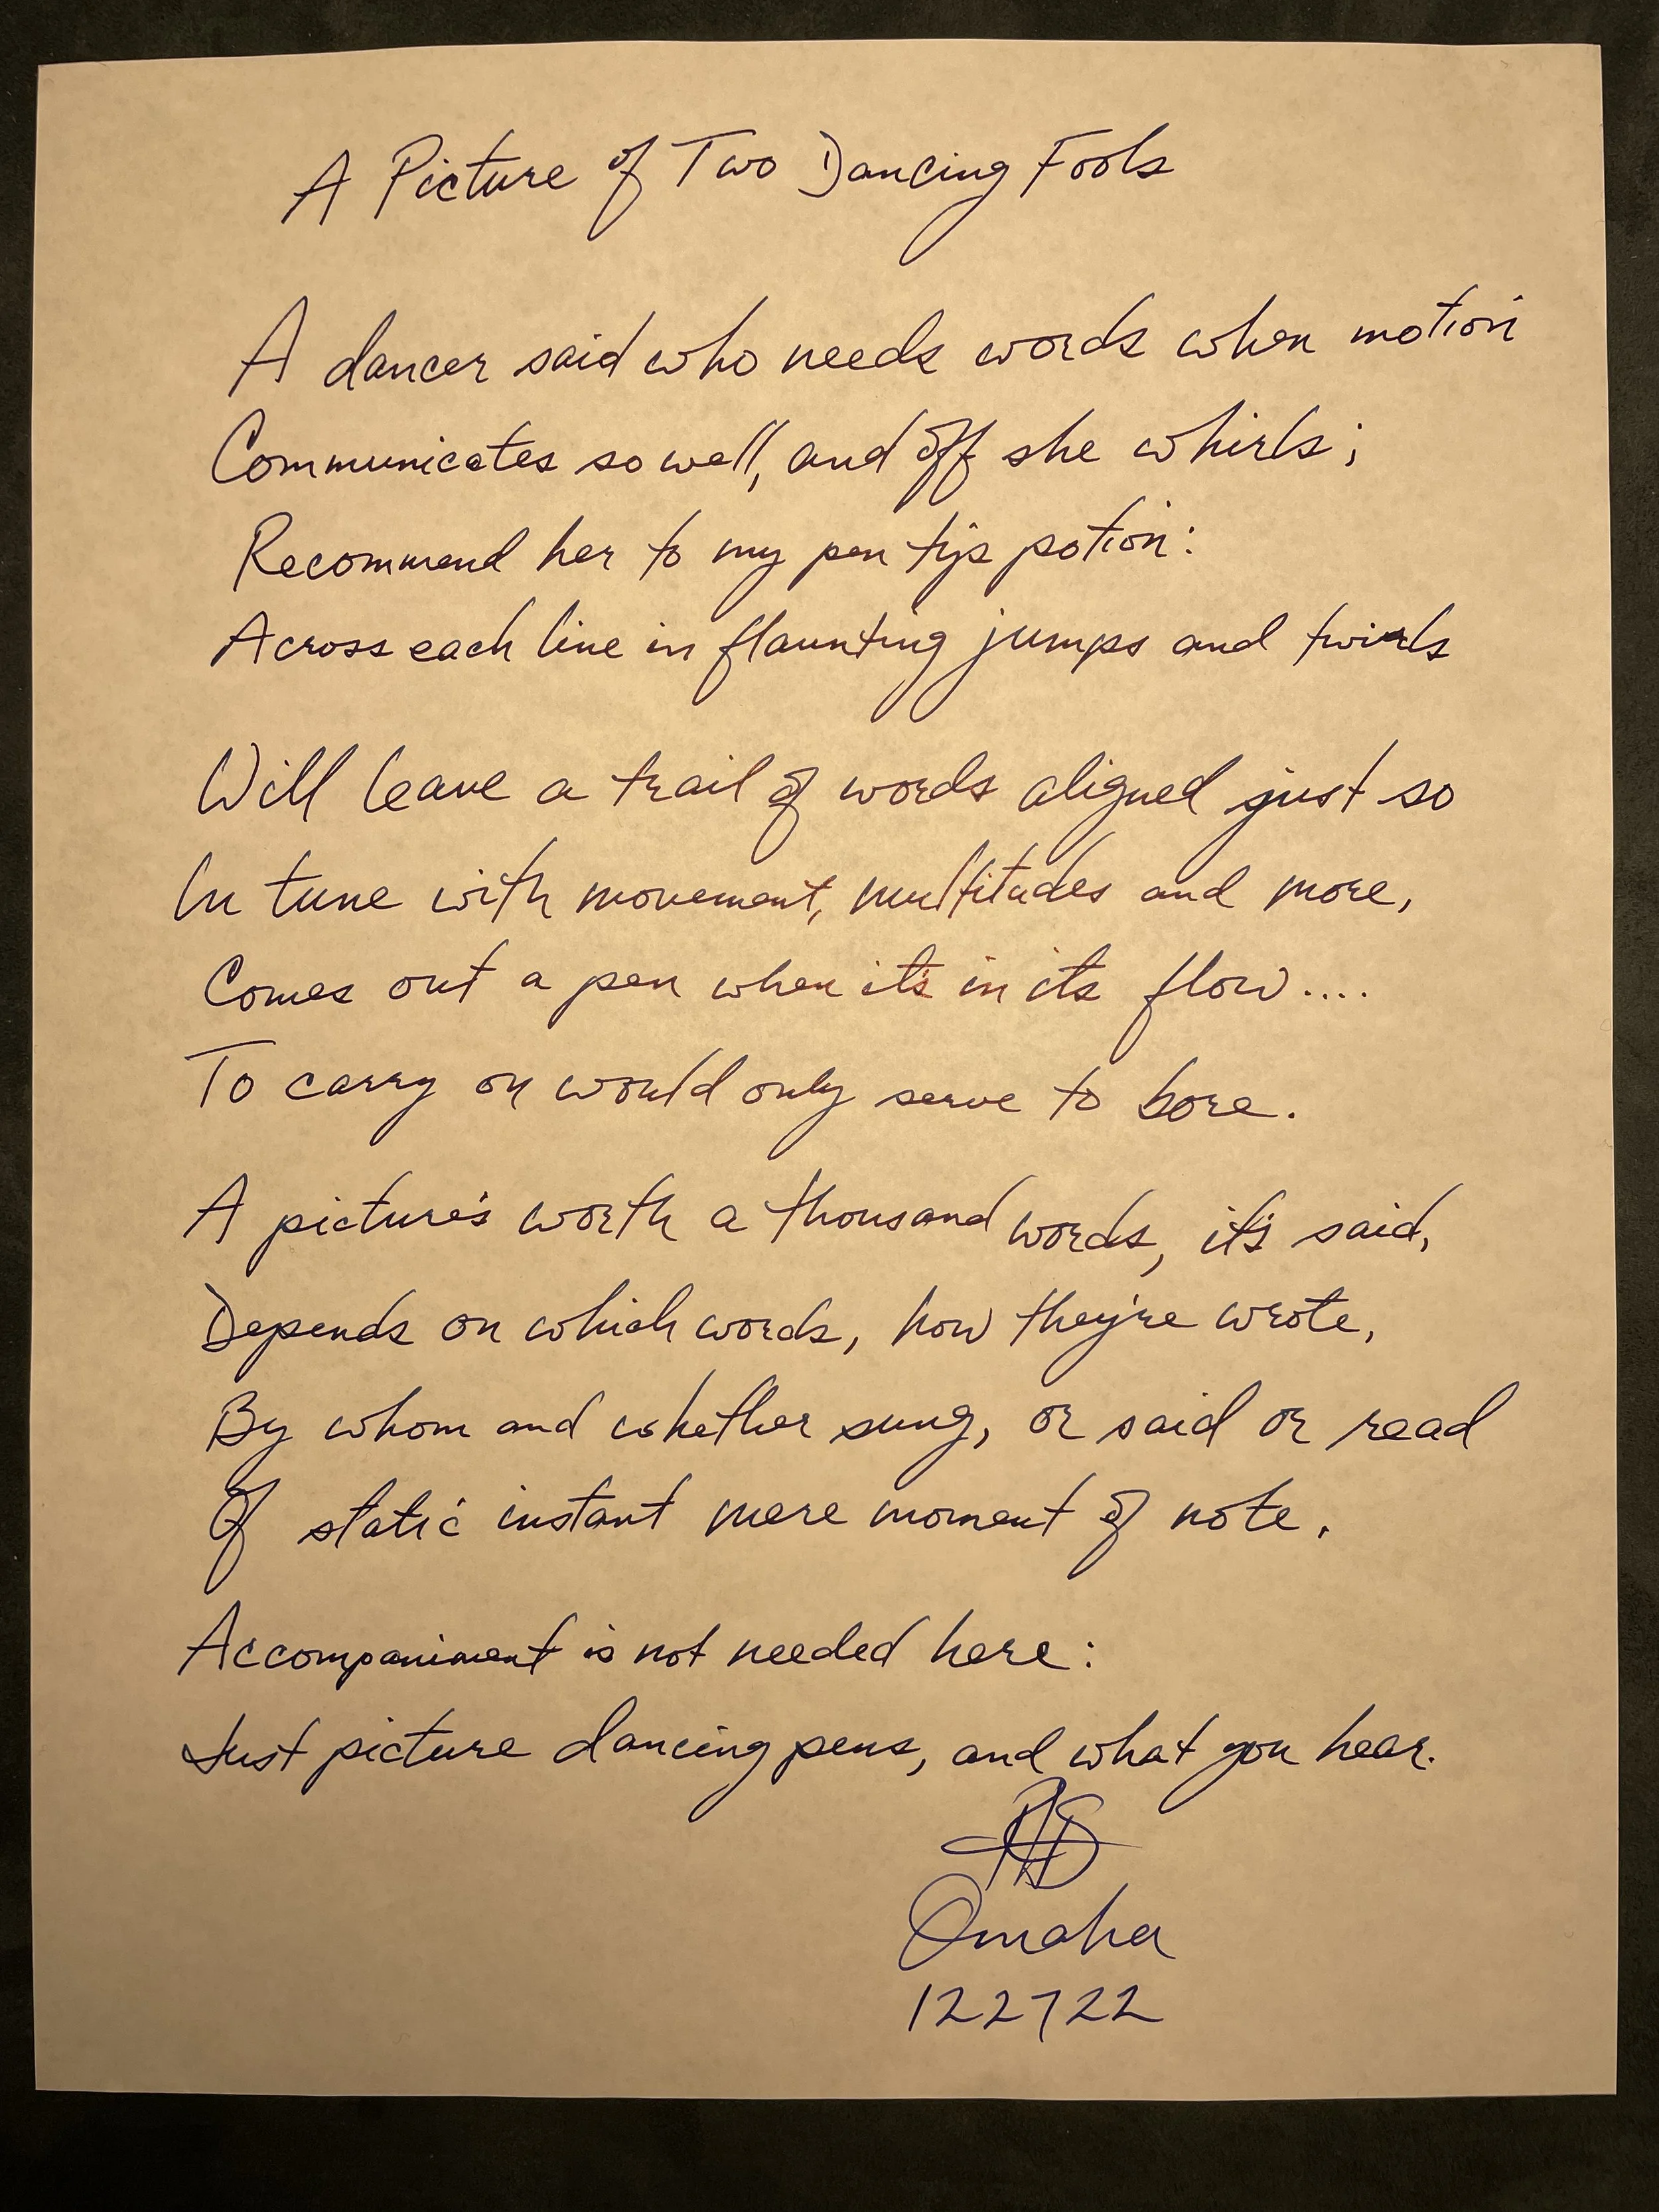 A Picture of Two Dancing Fools
A dancer said who needs words when motion
Communicates so well, and off she whirls;
Recommend her to my pen tips potion:
Across each line in flaunting jumps and twirls
Will leave a trail of words aligned just so
In tune with movement, multitudes and more,
Comes out a pen when it's in its flow....
To carry on would only serve to bore.
A picture's worth a thousand words, it's said,
Depends on which words, how they're wrote,
By whom and whether sung, or said or read
Of static instant mere moment of note.
Accompaniment is not needed here:
Just picture dancing pens, and what you hear.
Omaha
122722